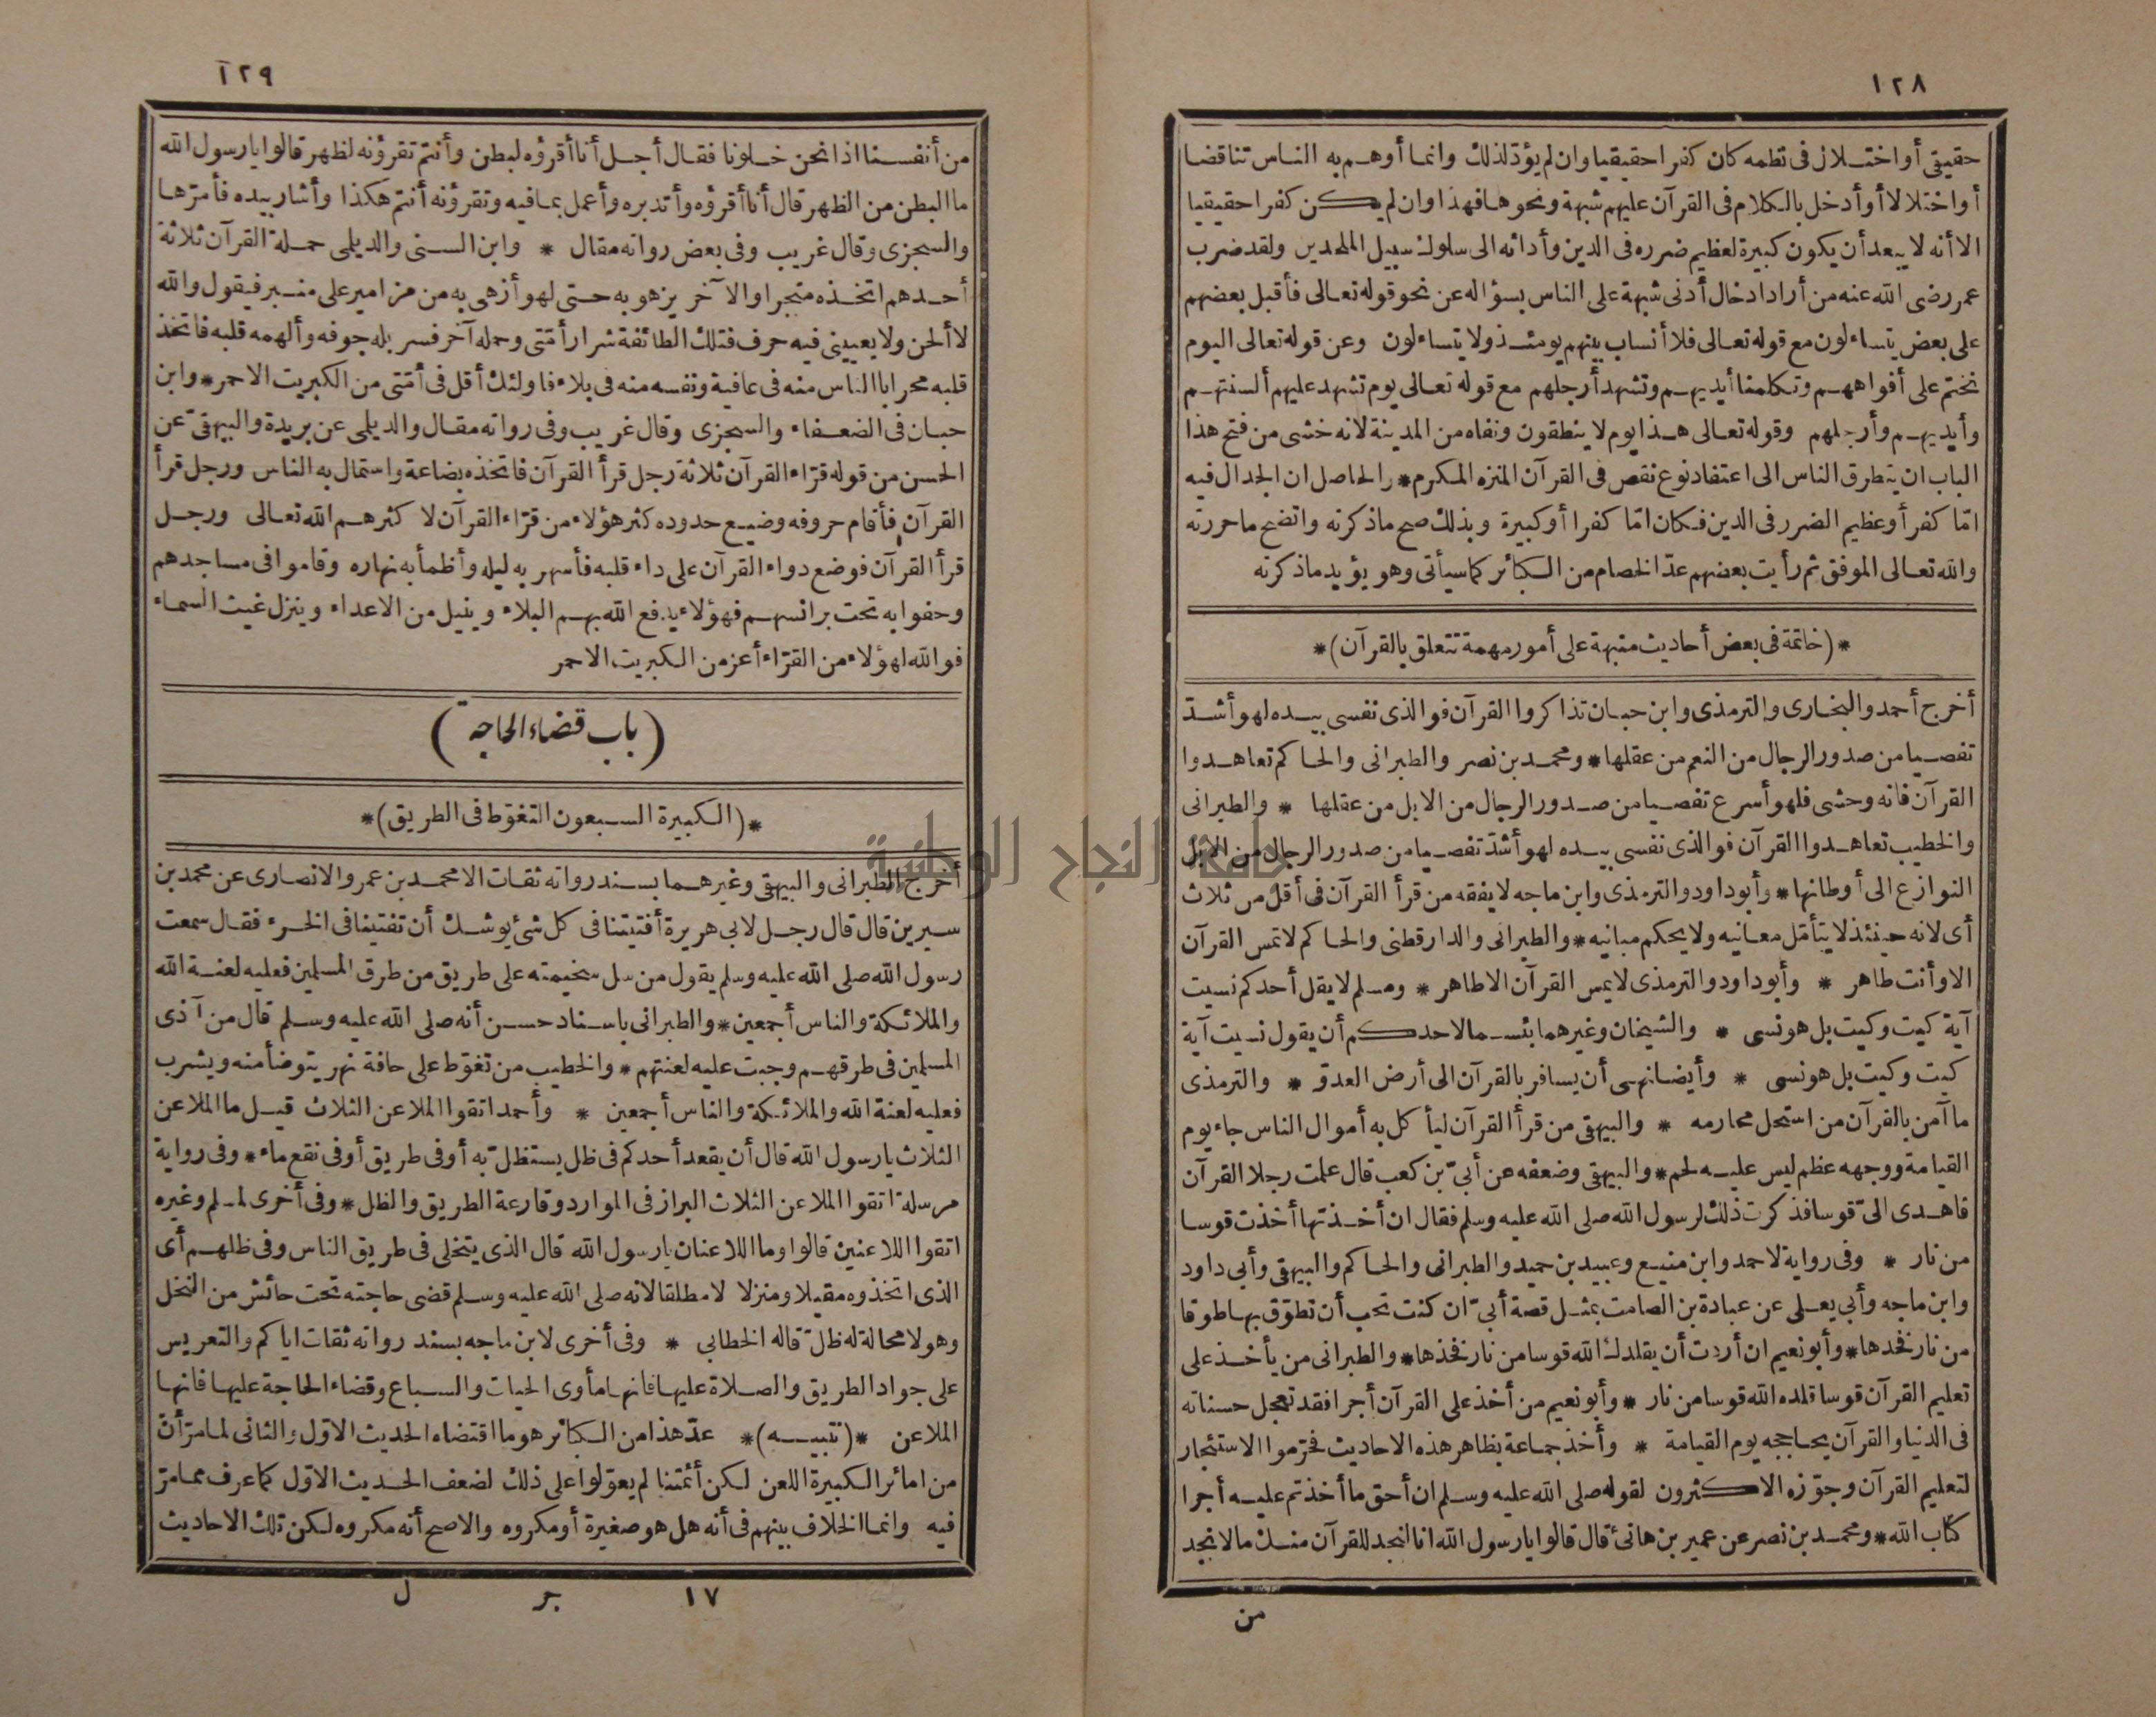 ١٢٨
حقيقى أو اختلال فى نظمه كان كفرا حقيقيا وان لم يؤد لذلك وانما أوهم به الناس تناقضا
أو اختلالا أو أدخل بالكلام فى القرآن عليهم شبهة ونحوها فهذا وان لم يكن كفرا حقيقيا
الا أنه لا يبعد أن يكون كبيرة لعظيم ضرره فى الدين وأدائه الى سلوك سبيل الملحدين ولقد ضرب
عمر رضى الله عنه من أراد ادخال أدنى شبهة على الناس بسؤاله عن نحو قوله تعالى فأقبل بعضهم
على بعض يتساءلون مع قوله تعالى فلا أنساب بينهم يومئذ ولا يتساءلون وعن قوله تعالى اليوم
نختم على أفواههم وتكلمنا أيديهم وتشهد أرجلهم مع قوله تعالى يوم تشهد عليهم ألسنتهم
وأيديهم وأرجلهم وقوله تعالى هذا يوم لا ينطقون ونفاه من المدينة لانه خشى من فتح هذا
الباب ان يتطرق الناس الى اعتقاد نوع نقص فى القرآن المنزه المكرم * والحاصل ان الجدال فيه
امّا كفر أو عظيم الضرر فى الدين فكان امّا كفرا أو كبيرة وبذلك صح ماذكرته واتضح ما حررته
والله تعالى الموفق ثم رأيت بعضهم عدّ الخصام من الكبائر كما سيأتى وهو يؤيد ماذكرته
*(خاتمة فى بعض أحاديث منبهة على أمور مهمة تتعلق بالقرآن)*
أخرج أحمد والبخارى والترمذى وابن حبان تذاكروا القرآن فوالذى نفسى بيده لهو أشدّ
تفصيا من صدور الرجال من النعم من عقلها * ومحمد بن نصر والطبرانى والحاكم تعاهدوا
القرآن فانه وحشى فلهو أسرع تفصيا من صدور الرجال من الابل من عقلها * والطبرانى
والخطيب تعاهدوا القرآن فوالذى نفسى بيده لهو أشدّ تفصيا من صدور الرجال من الابل
النوازع الى أوطانها * وأبو داود والترمذى وابن ماجه لا يفقه من قرأ القرآن فى أقل من ثلاث
أى لانه حينئذ لا يتأمّل معانيه ولا يحكم مبانيه * والطبرانى والدارقطنى والحاكم لا تمس القرآن
الا وأنت طاهر * وأبو داود والترمذى لا يمس القرآن الا طاهر * ومسلم لا يقل أحدكم نسيت
آية كيت وكيت بل هو نسى * والشيخان وغيرهما بئسما لاحدكم أن يقول نسيت آية
كيت وكيت بل هو نسى * وأيضا نهى أن يسافر بالقرآن الى أرض العدوّ * والترمذى
ما آمن بالقرآن من استحل محارمه * والبيهقى من قرأ القرآن ليأكل به أموال الناس جاء يوم
القيامة ووجهه عظم ليس عليه لحم * والبيهقى وضعفه عن أبىّ بن كعب قال علمت رجلا القرآن
فاهدى الىّ قوسا فذكرت ذلك لرسول الله صلى الله عليه وسلم فقال ان أخذتها أخذت قوسا
من نار * وفى رواية لاحمد وابن منيع وعبيد بن حميد والطبرانى والحاكم والبيهقى وأبى داود
وابن ماجه وأبى يعلى عن عبادة بن الصامت بمثل قصة أبىّ ان كنت تحب أن تطوّق بها طوقا
من نار فخذها * وأبو نعيم ان أردت أن يقلدك الله قوسا من نار فخذها * والطبرانى من يأخذ على
تعليم القرآن قوسا قلده الله قوسا من نار * وأبو نعيم من أخذ على القرآن أجرا فقد تعجل حسناته
فى الدنيا والقرآن يحاججه يوم القيامة * وأخذ جماعة بظاهر هذه الاحاديث فحرّموا الاستئجار
لتعليم القرآن وجوّزه الاكثرون لقوله صلى الله عليه وسلم ان أحق ما أخذتم عليه أجرا
كتاب الله * ومحمد بن نصر عن عمير بن هانئ قال قالوا يا رسول الله انا لنجد للقرآن منك ما لا نجد
من
١٢٩
من أنفسنا اذا نحن خلونا فقال أجل أنا أقرؤه لبطن وأنتم تقرؤنه لظهر قالوا يا رسول الله
ما البطن من الظهر قال أنا أقرؤه وأتدبره وأعمل بما فيه وتقرؤنه أنتم هكذا وأشار بيده فأمرّها
والسجزى وقال غريب وفى بعض رواته مقال * وابن السنى والديلمى حملة القرآن ثلاثة
أحدهم اتخذه متجرا والآخر يزهو به حتى لهو أزهى به من مزامير على منبر فيقول والله
لا ألحن ولا يعيينى فيه حرف فتلك الطائفة شرار أمّتى وحمله آخر فسربله جوفه وألهمه قلبه فاتخذ
قلبه محرابا الناس منه فى عافية ونفسه منه فى بلاء فاولئك أقل فى أمّتى من الكبريت الاحمر * وابن
حبان فى الضعفاء والسجزى وقال غريب وفى رواته مقال والديلمى عن بريدة والبيهقىّ عن
الحسن من قوله قرّاء القرآن ثلاثة رجل قرأ القرآن فاتخذه بضاعة واستمال به الناس ورجل قرأ
القرآن فأقام حروفه وضيع حدوده كثر هؤلاء من قرّاء القرآن لا كثرهم الله تعالى ورجل
قرأ القرآن فوضع دواء القرآن على داء قلبه فأسهر به ليله وأظمأ به نهاره وقاموا فى مساجدهم
وحفوا به تحت برانسهم فهؤلاء يدفع الله بهم البلاء وينيل من الاعداء وينزل غيث السماء
فوالله لهؤلاء من القرّاء أعز من الكبريت الاحمر
(باب قضاء الحاجة)
*(الكبيرة السبعون التغوّط فى الطريق)*
أخرج الطبرانى والبيهقى وغيرهما بسند رواته ثقات الا محمد بن عمرو الانصارى عن محمد بن
سيرين قال قال رجل لابى هريرة أفتيتنا فى كل شئ يوشك أن تفتينا فى الخرء فقال سمعت
رسول الله صلى الله عليه وسلم يقول من سل سخيمته على طريق من طرق المسلمين فعليه لعنة الله
والملائكة والناس أجمعين * والطبرانى باسناد حسن أنه صلى الله عليه وسلم قال من آذى
المسلمين فى طرقهم وجبت عليه لعنتهم * والخطيب من تغوّط على حافة نهر يتوضأ منه ويشرب
فعليه لعنة الله والملائكة والناس أجمعين * وأحمد اتقوا الملاعن الثلاث قيل ما الملاعن
الثلاث يا رسول الله قال أن يقعد أحدكم فى ظل يستظلّ به أو فى طريق أو فى نقع ماء * وفى رواية
مرسلة اتقوا الملاعن الثلاث البراز فى الموارد وقارعة الطريق والظل * وفى أخرى لمسلم وغيره
اتقوا اللاعنين قالوا وما اللاعنان يا رسول الله قال الذى يتخلى فى طريق الناس وفى ظلهم أى
الذى اتخذوه مقيلا ومنزلا لا مطلقا لانه صلى الله عليه وسلم قضى حاجته تحت حائش من النخل
وهو لا محالة له ظلّ قاله الخطابى * وفى أخرى لابن ماجه بسند رواته ثقات اياكم والتعريس
على جواد الطريق والصلاة عليها فانها مأوى الحيات والسباع وقضاء الحاجة عليها فانها
الملاعن *(تنبيه)* عدّ هذا من الكبائر هو ما اقتضاه الحديث الاوّل والثانى لما مرّ أنّ
من امائر الكبيرة اللعن لكن أئمتنا لم يعوّلوا على ذلك لضعف الحديث الاوّل كما عرف مما مرّ
فيه وانما الخلاف بينهم فى أنه هل هو صغيرة أو مكروه والاصح أنه مكروه لكن تلك الاحاديث
١٧ جر ل
جامعة النجاح الوطنية